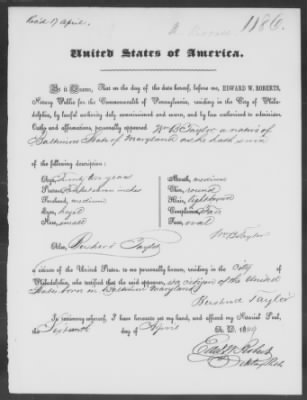 Rec'd 17 April.
1186.
United States of America.
Be it Known, That on the day of the date hereof, before me, EDWARD W. ROBERTS,
Notary Public for the Commonwealth of Pennsylvania, residing in the City of
Philadelphia, by lawful authority duly commissioned and sworn, and by law authorized to administer
Oaths and affirmations, personally appeared Wm B Taylor a native of
Baltimore State of Maryland
of the following description:
Age, years Mouth, medium
Stature, inches Chin, round
Forehead, medium Hair, light brown
Eyes, hazel Complexion, Fair
Nose, small Face, oval
Wm B Taylor
Also, Taylor
a citizen of the United States, to me personally known, residing in the City of
Philadelphia, who testified that the said appearer, is a citizen of the United
States born in Baltimore Maryland
Taylor
In testimony whereof, I have hereunto set my hand, and affixed my Notarial Seal,
this Sixteenth day of April A. D. 1849
Edw W Roberts
Notary Pub.